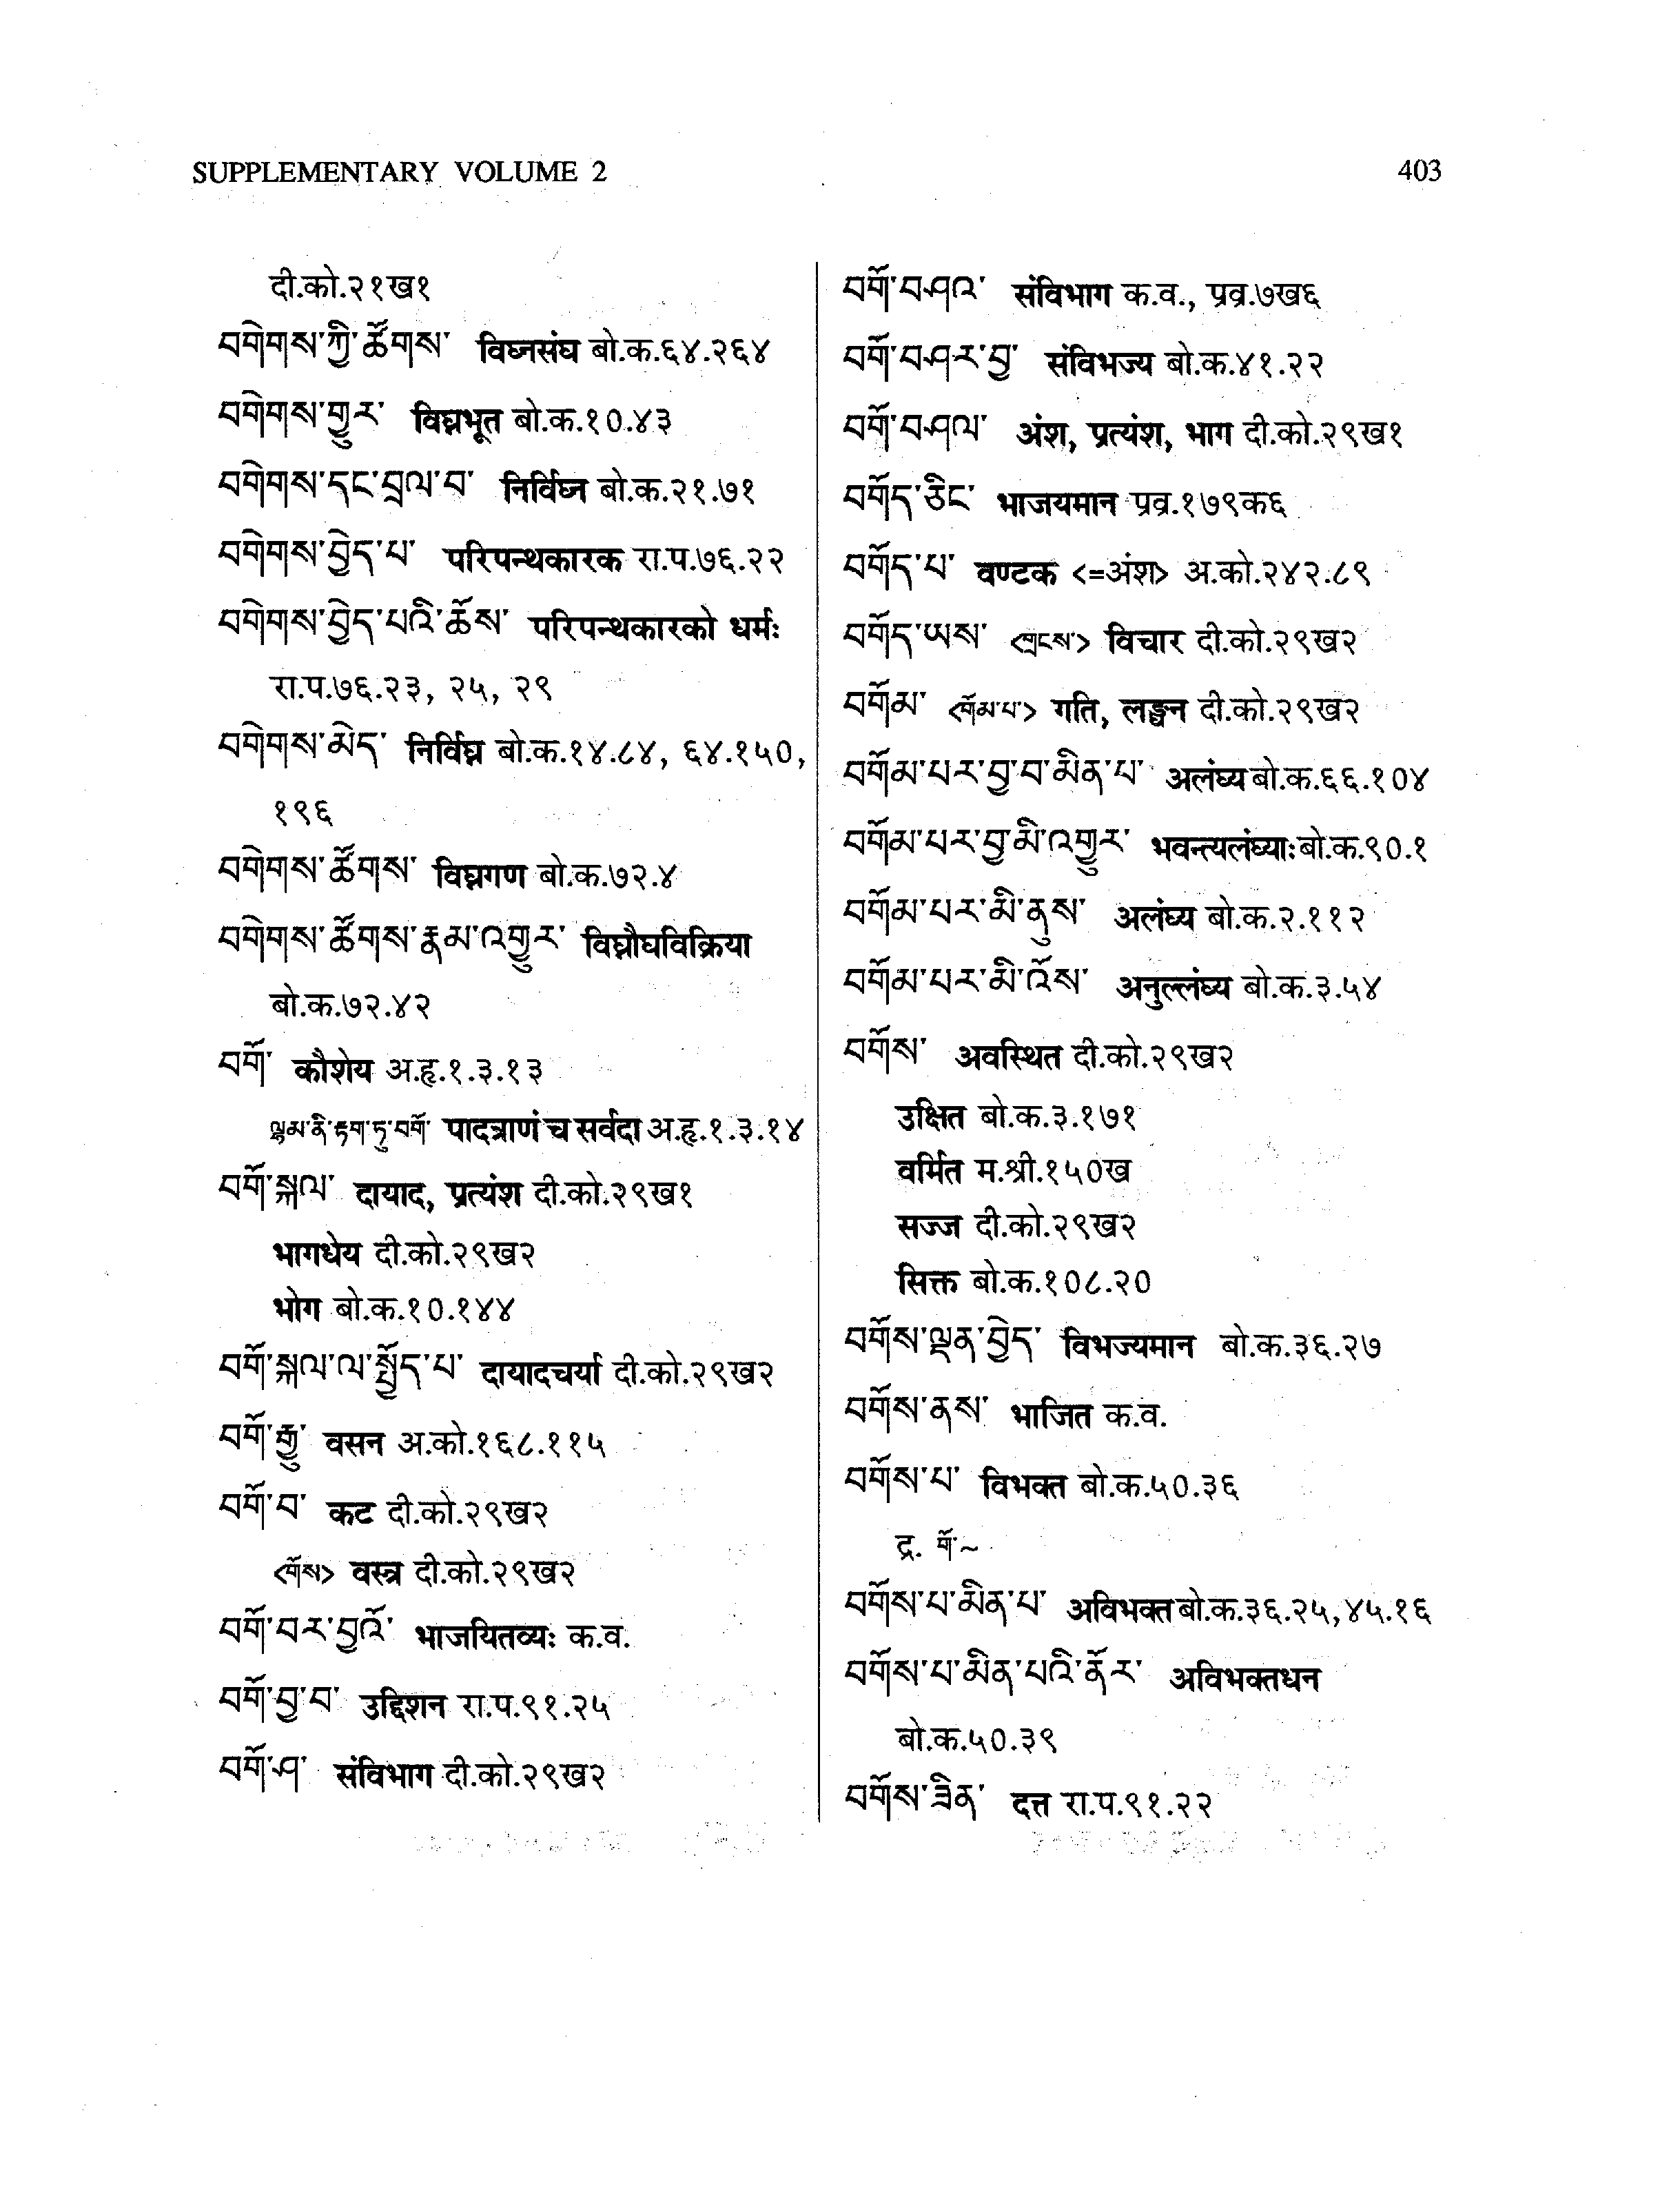 SUPPLEMENTARY VOLUME 2
403
दी.को.२१ख१
བགེགས་ཀྱི་ཚོགས་ विघ्नसंघ बो.क.६४.२६४
བགེགས་གྱུར་ विघ्नभूत बो.क.१०.४३
བགེགས་དང་བྲལ་བ་ निर्विघ्न बो.क.२१.७१
བགེགས་བྱེད་པ་ परिपन्थकारक रा.प.७६.२२
བགེགས་བྱེད་པའི་ཆོས་ परिपन्थकारको धर्मः
रा.प.७६.२३, २५, २९
བགེགས་མེད་ निर्विघ्न बो.क.१४.८४, ६४.१५०,
१९६
བགེགས་ཚོགས་ विघ्नगण बो.क.७२.४
བགེགས་ཚོགས་རྣམ་འགྱུར་ विघ्नौघविक्रिया
बो.क.७२.४२
བགོ་ कौशेय अ.हृ.१.३.१३
ལྷམ་ནི་རྟག་ཏུ་བགོ་ पादत्राणं च सर्वदा अ.हृ.१.३.१४
བགོ་སྐལ་ दायाद, प्रत्यंश दी.को.२९ख१
भागधेय दी.को.२९ख२
भोग बो.क.१०.१४४
བགོ་སྐལ་ལ་སྤྱོད་པ་ दायादचर्या दी.को.२९ख२
བགོ་རྒྱུ་ वसन अ.को.१६८.११५
བགོ་བ་ कट दी.को.२९ख२
<གོས> वस्त्र दी.को.२९ख२
བགོ་བར་བྱའོ་ भाजयितव्यः क.व.
བགོ་བྱ་བ་ उद्दिशन रा.प.९१.२५
བགོ་ཤ་ संविभाग दी.को.२९ख२
བགོ་བཤའ་ संविभाग क.व., प्रव्र.७ख६
བགོ་བཤར་བྱ་ संविभज्य बो.क.४१.२२
བགོ་བཤལ་ अंश, प्रत्यंश, भाग दी.को.२९ख१
བགོད་ཅིང་ भाजयमान प्रव्र.१७९क६
བགོད་པ་ वण्टक <=अंश> अ.को.२४२.८९
བགོད་ཡས་ <གྲངས་> विचार दी.को.२९ख२
བགོམ་ <གོམ་པ་> गति, लङ्घन दी.को.२९ख२
བགོམ་པར་བྱ་བ་མིན་པ་ अलंघ्य बो.क.६६.१०४
བགོམ་པར་བྱ་མི་འགྱུར་ भवन्त्यलंघ्याः बो.क.९०.१
བགོམ་པར་མི་ནུས་ अलंघ्य बो.क.२.११२
བགོམ་པར་མི་འོས་ अनुल्लंघ्य बो.क.३.५४
བགོས་ अवस्थित दी.को.२९ख२
उक्षित बो.क.३.१७१
वर्मित म.श्री.१५०ख
सज्ज दी.को.२९ख२
सिक्त बो.क.१०८.२०
བགོས་ལྡན་བྱེད་ विभज्यमान बो.क.३६.२७
བགོས་ནས་ भाजित क.व.
བགོས་པ་ विभक्त बो.क.५०.३६
द्र. གོ་~
བགོས་པ་མིན་པ་ अविभक्त बो.क.३६.२५,४५.१६
བགོས་པ་མིན་པའི་ནོར་ अविभक्तधन
बो.क.५०.३९
བགོས་ཟིན་ दत्त रा.प.९१.२२